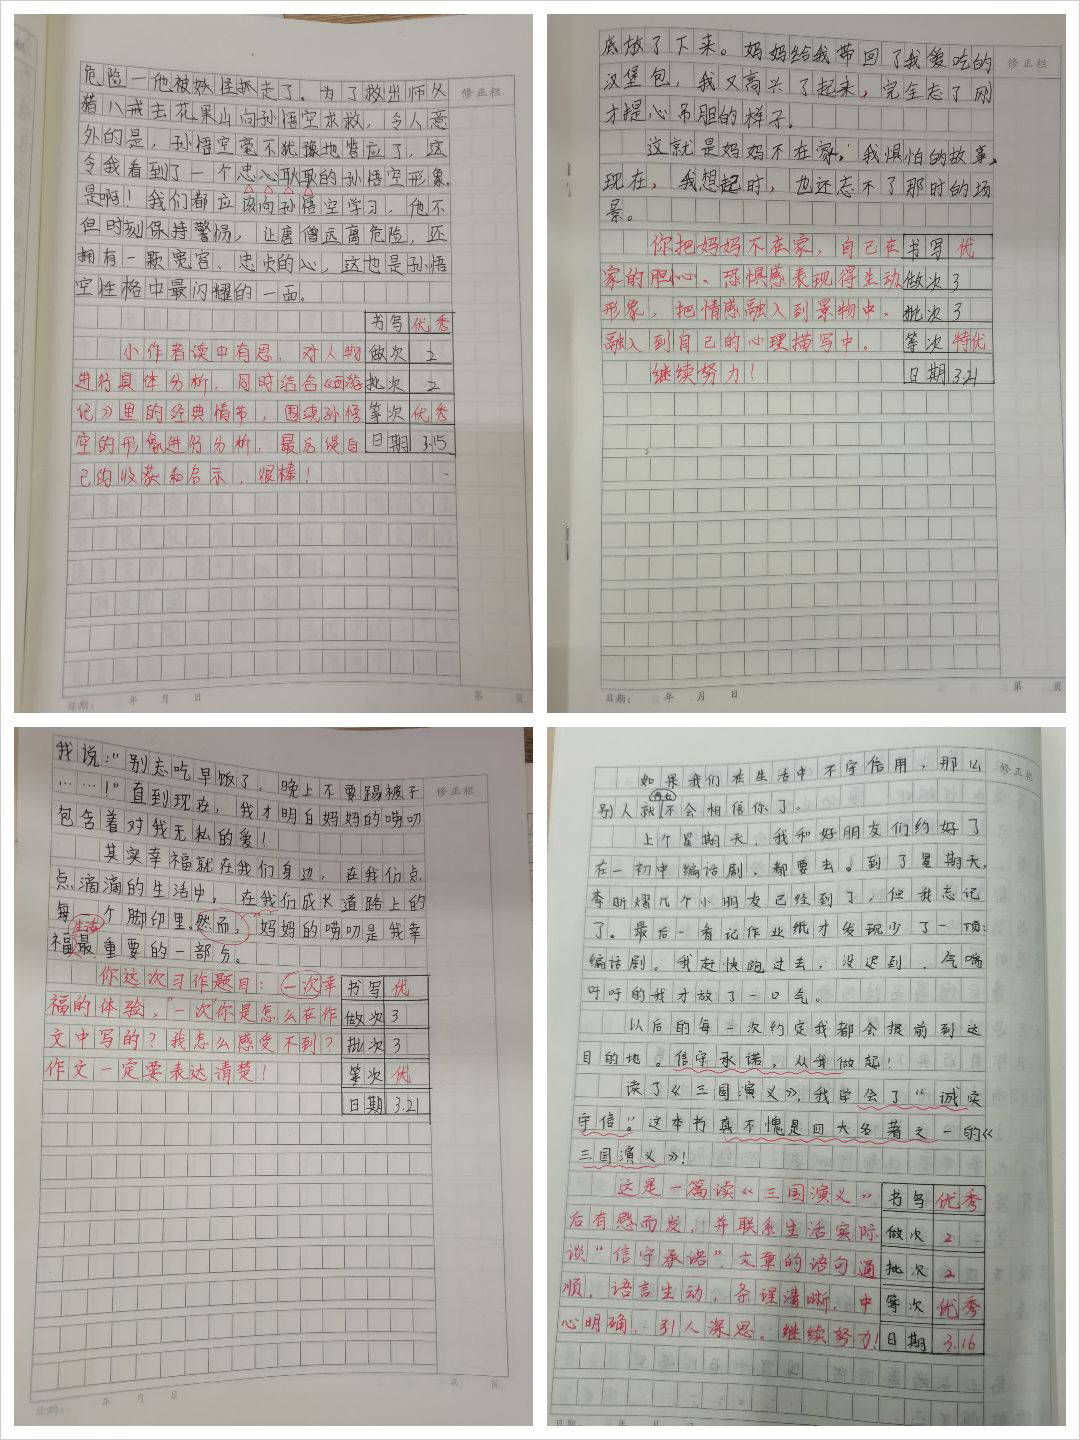 危险一他被妖怪抓走了。为了救出师父
修正栏
猪八戒去花果山向孙悟空求救，令人意
外的是，孙悟空毫不犹豫地答应了，这
令我看到了一个忠心耿耿的孙悟空形象。
是啊！我们都应该向孙悟空学习，他不
但时刻保持警惕，让唐僧远离危险，还
拥有一颗宽容、忠贞的心，这也是孙悟
空性格中最闪耀的一面。
书写 优秀
小作者读中有思，对人物
做次 2
进行具体分析，同时结合《西游
批次 2
记》里的经典情节，围绕孙悟
等次 优秀
空的形象进行分析，最后谈自
日期 3.15
己的收获和启示，很棒！
日期： 年 月 日
第 页
底放了下来。妈妈给我带回了我爱吃的
修正栏
汉堡包，我又高兴了起来，完全忘了刚
才提心吊胆的样子。
这就是妈妈不在家，我惧怕的故事，
现在，我想起时，也还忘不了那时的场
景。
你把妈妈不在家，自己在
书写 优
家的胆心、恐惧感表现得生动
做次 3
形象，把情感融入到景物中，
批次 3
融入到自己的心理描写中。
等次 特优
继续努力！
日期 3.21
日期： 年 月 日
第 页
我说：“别忘吃早饭了，晚上不要踢被子
……！”直到现在，我才明白妈妈的唠叨
修正栏
包含着对我无私的爱！
其实幸福就在我们身边，在我们点
点滴滴的生活中，在我们成长道路上的
每一个脚印里。然而，妈妈的唠叨是我幸
生活
福最重要的一部分。
你这次习作题目：一次幸
书写 优
福的体验，“一次”你是怎么在作
做次 3
文中写的？我怎么感受不到？
批次 3
作文一定要表达清楚！
等次 优
日期 3.21
日期： 年 月 日
第 页
如果我们在生活中不守信用，那么
修正栏
再也
别人就不会相信你了。
上个星期天，我和好朋友们约好了
在一初中编话剧，都要去。到了星期天，
李昕熠几个小朋友已经到了，但我忘记
了。最后一看记作业纸才发现少了一项：
编话剧。我赶快跑过去，没迟到，气喘
吁吁的我才放了一口气。
以后的每一次约定我都会提前到达
目的地。信守承诺，从我做起！
读了《三国演义》，我学会了“诚实
守信”。这本书真不愧是四大名著之一的《
三国演义》！
这是一篇读《三国演义》
书写 优秀
后有感而发，并联系生活实际
做次 2
谈“信守承诺”，文章的语句通
批次 2
顺，语言生动，条理清晰，中
等次 优秀
心明确，引人深思。继续努力！
日期 3.16
日期： 年 月 日